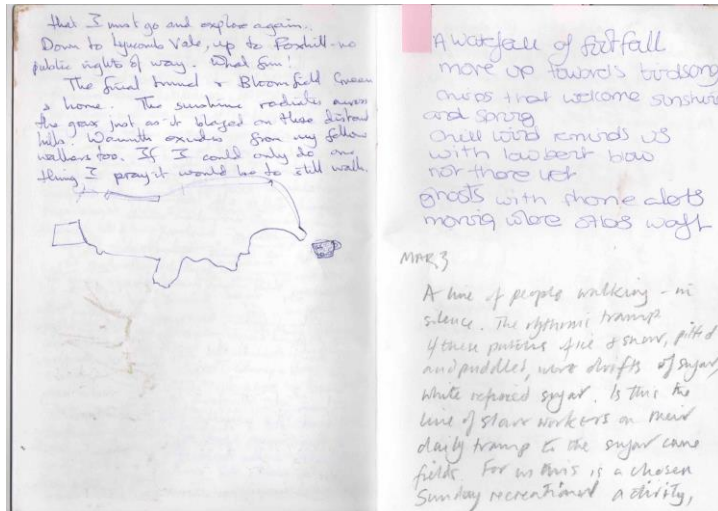 that I must go and explore again.
Down to Lyncomb Vale, up to Foxhill - no
public rights of way. What fun!
The final tunnel & Bloomfield Green
& home. The sunshine radiates across
the grass just as it blazed on those distant
hills. Warmth exudes from my fellow
walkers too. If I could only do one
thing I pray it would be to still walk.
A waterfall of footfall
move up towards birdsong
chirps that welcome sunshine
and spring
chill wind reminds us
with low bent bow
not there yet
ghosts with phone alerts
moving where others waft
MAR 3
A line of people walking - in
silence. The rhythmic tramp
if these patterns of snow, pitted
and puddled, were drifts of sugar,
white refined sugar. Is this the
line of slave workers on their
daily tramp to the sugar cane
fields. For us this is a chosen
Sunday recreational activity,